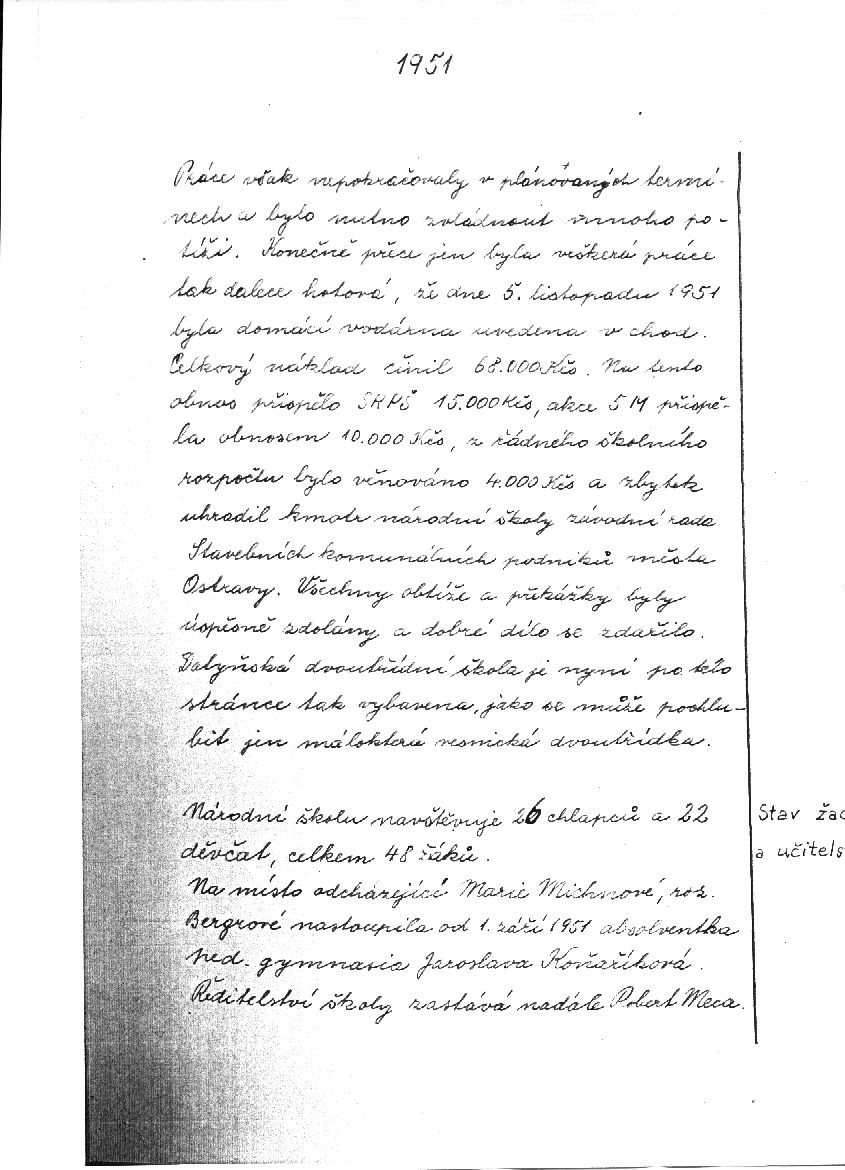 1951
Práce však nepokračovaly v plánovaných termí-
nech a bylo nutno zvládnout mnoho po-
tíží. Konečně přece jen byla veškerá práce
tak dalece hotová, že dne 5. listopadu 1951
byla domácí vodárna uvedena v chod.
Celkový náklad činil 68.000 Kčs. Na tento
obnos přispělo SRPŠ 15.000 Kčs, akce 5 M přispě-
la obnosem 10.000 Kčs, z řádného školního
rozpočtu bylo věnováno 4.000 Kčs a zbytek
uhradil kmotr národní školy závodní rada
Stavebních komunálních podniků města
Ostravy. Všechny obtíže a překážky byly
úspěšně zdolány a dobré dílo se zdařilo.
Datyňská dvoutřídní škola je nyní po této
stránce tak vybavena, jako se může pochlu-
bit jen málokterá vesnická dvoutřídka.
Národní školu navštěvuje 26 chlapců a 22
Stav žac
děvčat, celkem 48 žáků.
a učitels
Na místo odcházející Marie Michnové, roz.
Bergrové nastoupila od 1. září 1951 absolventka
ped. gymnasia Jaroslava Koňaříková.
Ředitelství školy zastává nadále Robert Meca.